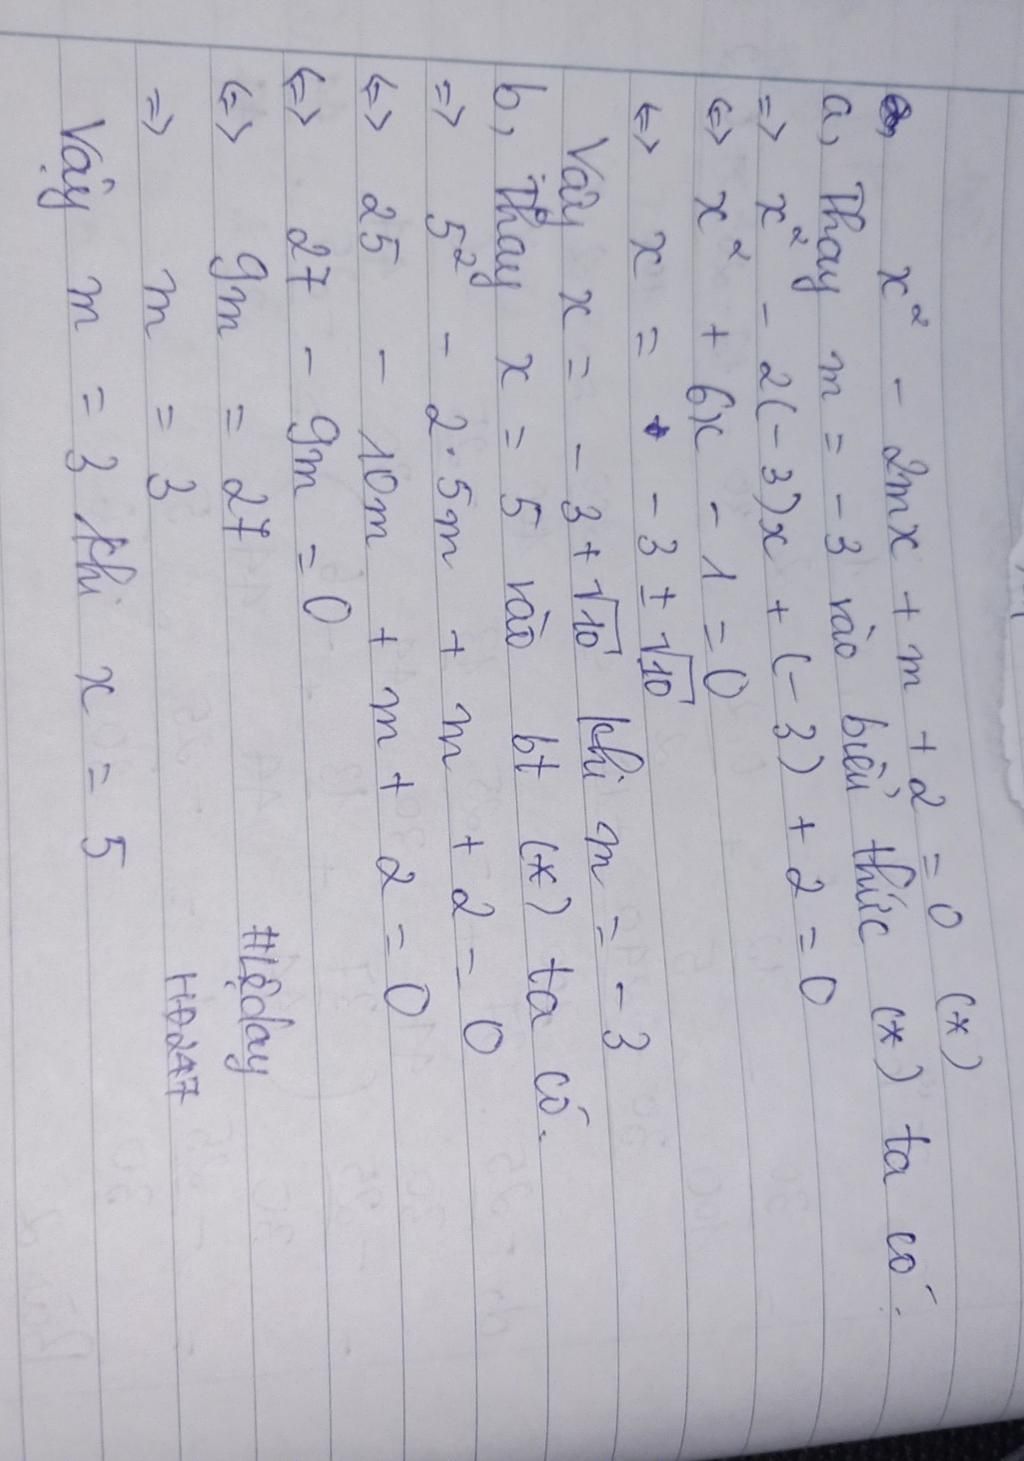 x² - 2mx + m + 2 = 0 (*)
a, Thay m = -3 vào biểu thức (*) ta có.
=> x² - 2(-3)x + (-3) + 2 = 0
<=> x² + 6x - 1 = 0
<=> x = -3 ± √10
Vậy x = -3 + √10 khi m = -3
b, Thay x = 5 vào bt (*) ta có.
=> 5² - 2.5m + m + 2 = 0
<=> 25 - 10m + m + 2 = 0
<=> 27 - 9m = 0
<=> 9m = 27
#Lệday
=> m = 3
H-D247
Vậy m = 3 khi x = 5